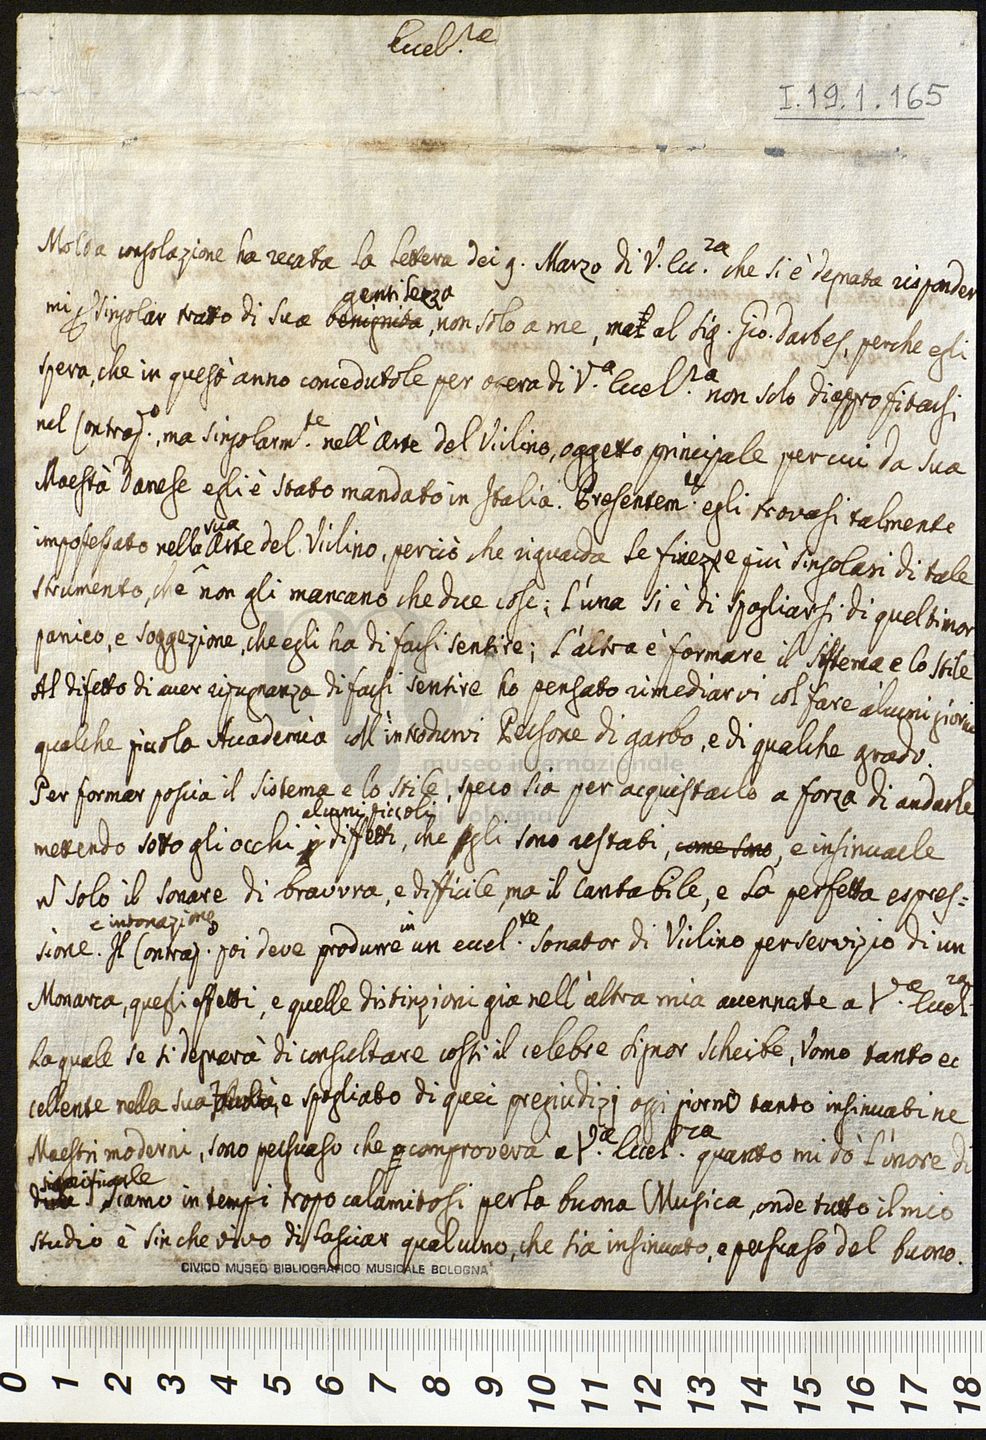 Eccel.za
I.19.1.165
Molta consolazione ha recata la lettera dei 9. Marzo di V. Ecc.za che si è degnata risponder
mi per singolar tratto di sua benignità gentilezza, non solo a me, ma al Sig. Gio. Darbes, perche egli
spera, che in quest'anno concedutole per opera di V.a Eccel.za non solo di approfitarsi
nel Contrap.o, ma singolarm.te nell'Arte del Violino, oggetto principale per cui da Sua
Maestà Danese egli è stato mandato in Italia. Presentem.te egli trovasi talmente
impossessato nella sua Arte del Violino, perciò che riguarda le finezze più singolari di tale
strumento, che non gli mancano che due cose; L'una si è di spogliarsi di quel timor
panico, e soggezione, che egli ha di farsi sentire; L'altra è formare il sistema e lo stile
Al difetto di aver ripugnanza di farsi sentire ho pensato rimediarvi col fare alcuni giorni
qualche piccola Accademia coll'introdurvi Persone di garbo, e di qualche grado.
Per formar poscia il sistema e lo stile, spero sia per acquistarlo a forza di andarle
mettendo sotto gli occhi alcuni piccoli diffetti, che egli sono restati, come sono, e insinuarle
ñ solo il sonare di bravvra, e difficile, ma il Cantabile, e la perfetta espres=
sione e intonazione. Il Contrap. poi deve produrre in un eccel.te Sonator di Violino per servizio di un
Monarca, quegli effetti, e quelle distinzioni gia nell'altra mia accennate a V.a Eccel.za
La quale se si degnerà di consultare costì il celebre Signor Scheibe, Uomo tanto ec
cellente nella sua e spogliato di quei pregiudizj oggi giorno tanto insinuati ne
Maestri moderni, sono persuaso che comproverà a V.a Eccel.za quanto mi dò l'onore di
significarle siamo in tempi tropo calamitosi per la buona Musica, onde tutto il mio
studio è sin che vivo di lasciar qualcuno, che sia insinuato, e persuaso del buono.
museo internazionale
CIVICO MUSEO BIBLIOGRAFICO MUSICALE BOLOGNA
0 1 2 3 4 5 6 7 8 9 10 11 12 13 14 15 16 17 18